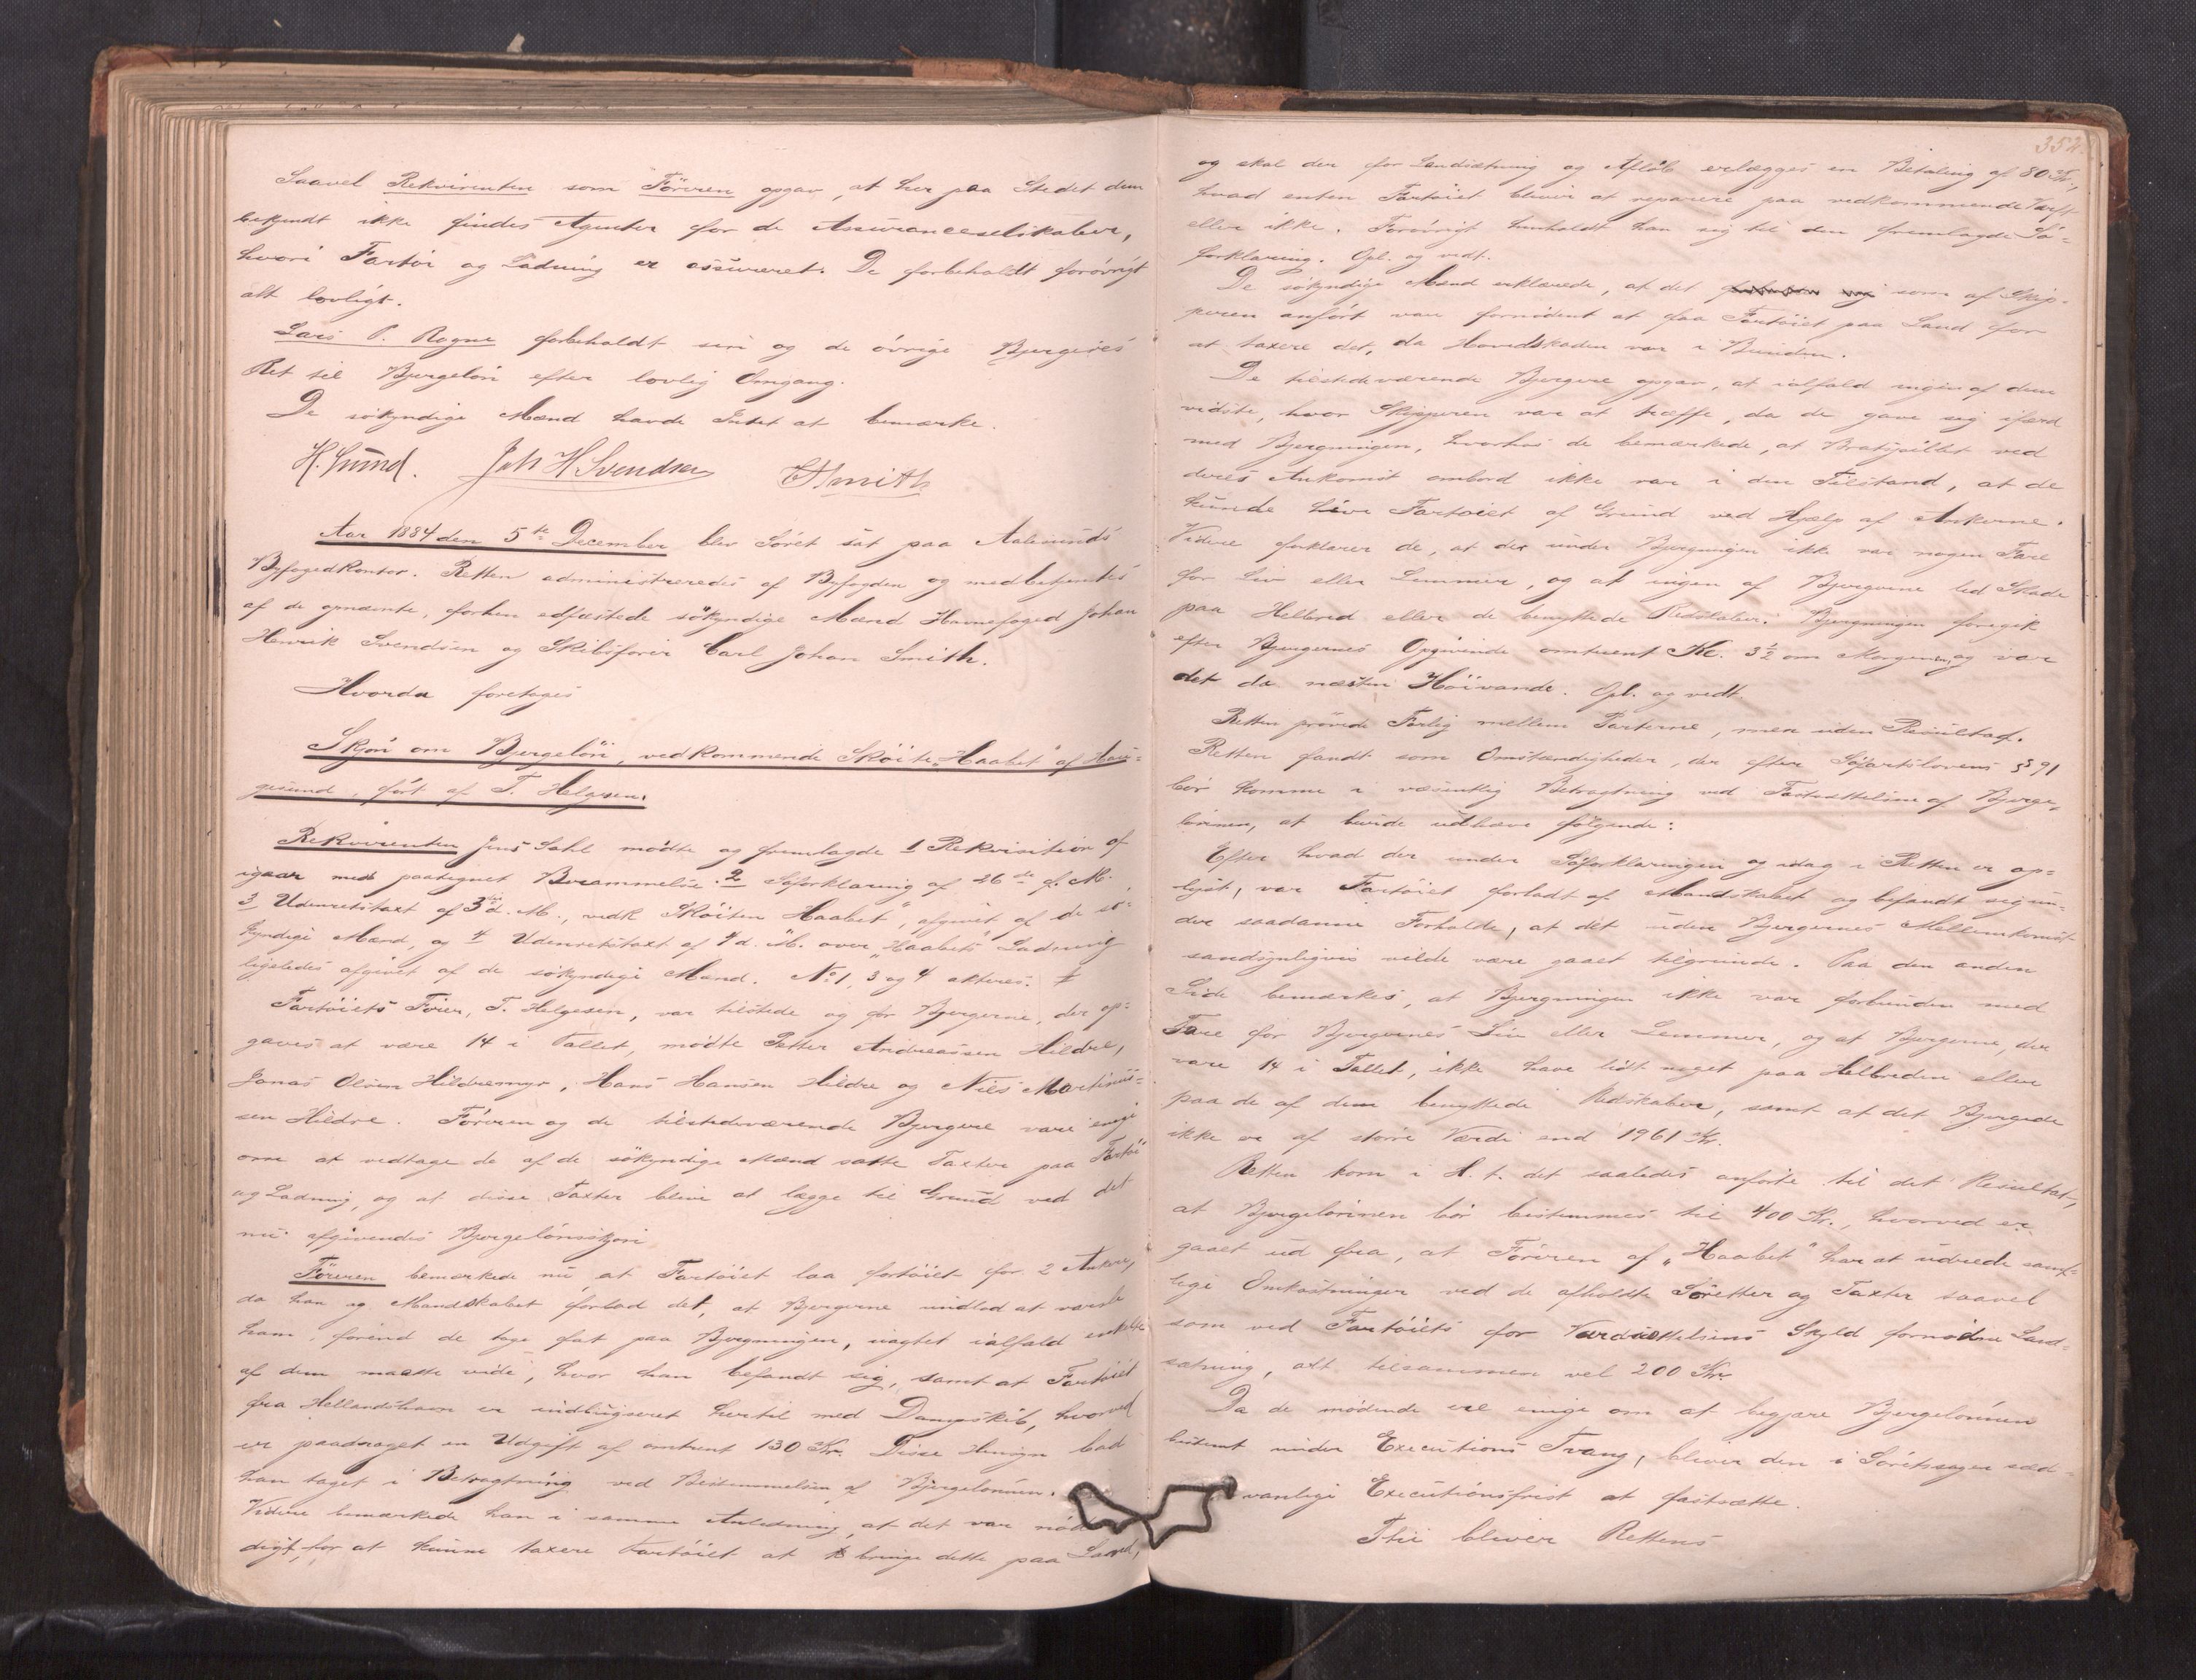 Saavel Rekvirenten som Föreren opgav, at her paa Stedet dem
bekjendt ikke findes Agenter for de Assuranceselskaber,
hvori Fartöi og Ladning er assureret. De forbeholdt forövrigt
alt lovligt.
Lars P. Rogne forbeholdt sin og de övrige Bjergeres
Ret til Bjergelön efter lovlig Omgang.
De sökyndige Mænd havde Intet at bemærke.
H. Lund. Joh H. Svendsen CJSmith
Aar 1884 den 5te December blev Söret sat paa Aalesunds
Byfogedkontor. Retten administreredes af Byfogden og medbetjentes
af de opnævnte, forhen edfæstede sökyndige Mænd Havnefoged Johan
Henrik Svendsen og Skibsförer Carl Johan Smith.
Hvorda foretoges
Skjön om Bjergelön, vedkommende Sköite „Haabet" af Hau-
gesund, fört af T. Helgesen.
Rekvirenten Jens Dahl mödte og fremlagde 1 Rekvisition af
igaar med paategnet Berammelse. 2 Söforklaring af 26de f. M.
3 Udenretstaxt af 3die d. M., vedk Sköiten „Haabet", afgivet af de sö-
kyndige Mænd, og 4 Udenretstaxt af 4 d. M. over „Haabets" Ladning
ligeledes afgivet af de sökyndige Mænd. No 1, 3 og 4 akteres. ‡
Fartöiets Förer, T. Helgesen, var tilstede og for Bjergerne, der op-
gaves at være 14 i Tallet, mödte Petter Andreassen Hildre,
Jonas Olsen Hildremyr, Hans Hansen Hildre og Nils Martinus-
sen Hildre. Föreren og de tilstedeværende Bjergere vare enige
om at vedtage de af de sökyndige Mænd satte Taxter paa Fartöi
og Ladning, og at disse Taxter blive at lægge til Grund ved det
nu afgivendes Bjergelönsskjön
Föreren bemærkede nu, at Fartöiet laa fortöiet for 2 Ankere,
da han og Mandskabet forlod det, at Bjergerne undlod at varsle
ham, förend de tage fat paa Bjergningen, uagtet ialfald enkelte
af dem maatte vide, hvor han befandt sig, samt at Fartöiet
fra Hellandshavn er indbugseret hertil med Dampskib, hvorved
er paadraget en Udgift af omtrent 130 Kr. Disse Hensyn bad
han taget i Betragtning ved Bestemmelsen af Bjergelönnen.
Videre bemærkede han i samme Anledning, at det var nöd
digt, for at kunne taxere Fartöiet at bringe dette paa Land,
352
og skal der for Landsætning og Aflöb erlægges en Betaling af 80 Kr,
hvad enten Fartöiet bliver at reparere paa vedkommende Værft
eller ikke. Forövrigt henholdt han sig til den fremlagde Sö-
forklaring. Opl. og vedt.
De sökyndige Mænd erklærede, at det som af Skip-
peren anfört var fornödent at faa Fartöiet paa Land for
at taxere det, da Hovedskaden var i Bunden.
De tilstedeværende Bjergere opgav, at ialfald ingen af dem
vidste, hvor Skipperen var at træffe, da de gave sig ifærd
med Bjergningen, hvorhos de bemærkede, at Bratspillet ved
deres Ankomst ombord ikke var i den Tilstand, at de
kunde hive Fartöiet af Grund ved Hjælp af Ankerne.
Videre forklarer de, at der under Bjergningen ikke var nogen Fare
for Liv eller Lemmer, og at ingen af Bjergerne led Skade
paa Helbred eller de benyttede Redskaber. Bjergningen foregik
efter Bjergernes Opgivende omtrent Kl. 3½ om Morgenen, og var
det da næsten Höivande. Opl. og vedt.
Retten prövede Forlig mellem Parterne, men uden Resultat.
Retten fandt som Omstændigheder, der efter Söfartslovens § 91
bör komme i væsentlig Betragtning ved Fastsættelsen af Bjerge-
lönnen, at burde udhæve fölgende:
Efter hvad der under Söforklaringen og idag i Retten er op-
lyst, var Fartöiet forladt af Mandskabet og befandt sig un-
der saadanne Forholde, at det uden Bjergernes Mellemkomst
sandsynligvis vilde være gaaet tilgrunde. Paa den anden
Side bemærkes, at Bjergningen ikke var forbunden med
Fare for Bjergernes Liv eller Lemmer, og at Bjergerne, der
vare 14 i Tallet, ikke have lidt noget paa Helbreden eller
paa de af dem benyttede Redskaber, samt at det Bjergede
ikke er af större Værdi end 1961 Kr.
Retten kom i H. t. det saaledes anförte til det Resultat,
at Bjergelönnen bör bestemmes til 400 Kr., hvorved er
gaaet ud fra, at Föreren af „Haabet" har at udrede samt-
lige Omkostninger ved de afholdte Söretter og Taxter saavel
som ved Fartöiets for Værdsættelsens Skyld fornödne Land-
sætning, alt tilsammen vel 200 Kr.
Da de mödende ere enige om at begjære Bjergelönnen
bestemt under Executions Tvang, bliver den i Söretssager sæd-
vanlige Executionsfrist at fastsætte.
Thi bliver Rettens